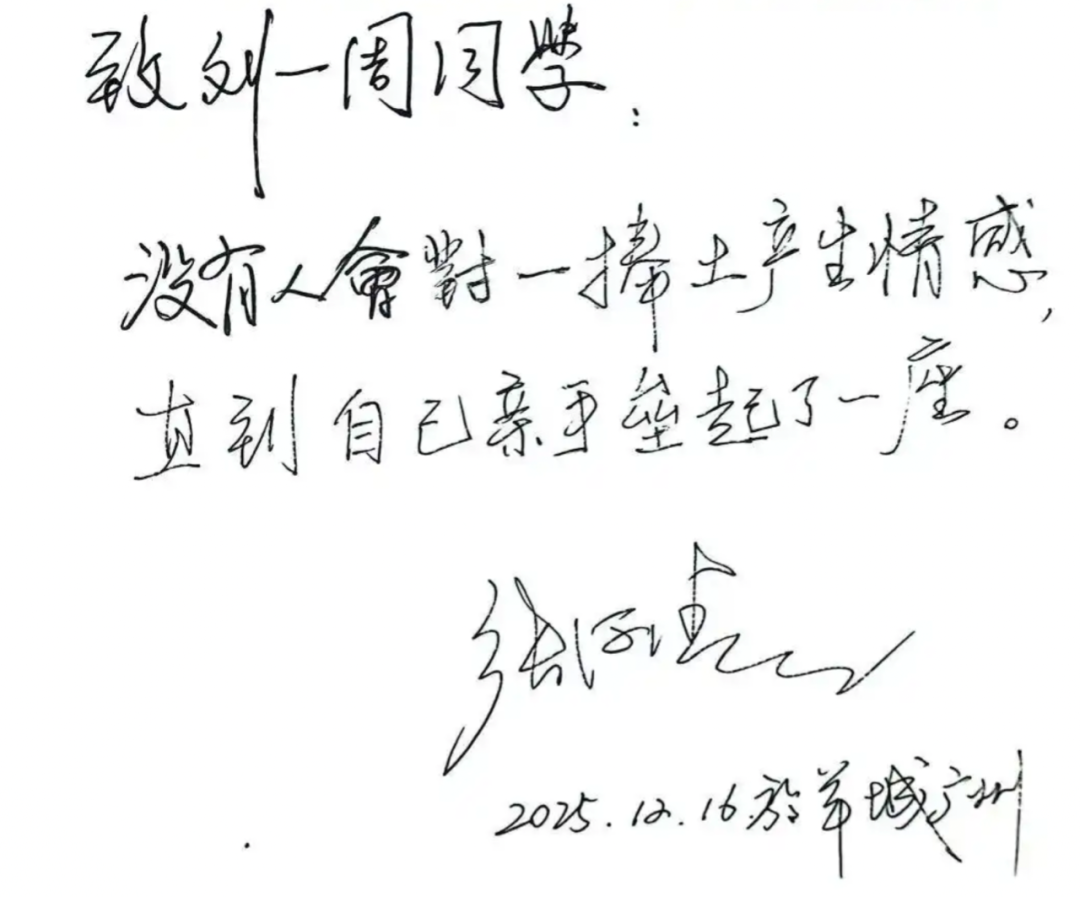 致刘一周同学：
没有人會對一捧土产生情感，
直到自己亲手垒起了一座。
张
2025.12.16.於羊城广州